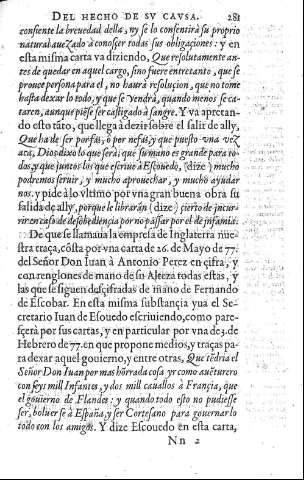 DEL HECHO DE SV CAVSA. 281
consiente la breuedad della, ny se lo consentirà su proprio
natural auezado à conosçer todas sus obligaçiones: y en
esta misma carta va diziendo, Que resolutamente an-
tes de quedar en aquel cargo, sino fuere entretanto, que se
prouee persona para el, no haurà resoluçion, que no tome
hasta dexar lo todo, y que se vendrà, quando menos se ca-
taren, aunque piense ser castigado à sangre. Y va apretan-
do esto tāto, que llega à dezir sobre el salir de ally,
Que ha de ser por fas, ò por nefas, y que puesto vna vez
acà, Dios dixo lo que serà; que su mano es grande para to-
dos, y que juntos los que escriue à Escouedo, (dize) mucho
podremos seruir, y mucho aprouechar, y mucho ayudar
nos. y pide à lo vltimo por vna gran buena obra su
salida de ally, porque le libraràn (dize) çierto de incur-
rir en caso de desobediençia por no passar por el de infamia.
De que se llamaua la empresa de Inglaterra nue-
stra traça, cōsta por vna carta de 26. de Mayo de 77.
del Señor Don Iuan à Antonio Perez en çifra, y
con renglones de mano de su Alteza todas estas, y
las que se siguen desçifradas de mano de Fernando
de Escobar. En esta misma substançia yua el Se-
cretario Iuan de Escouedo escriuiendo, como pare-
sçerà por sus cartas, y en particular por vna de 3. de
Hebrero de 77. en que propone medios, y traças pa-
ra dexar aquel gouierno, y entre otras, Que tēdria el
Señor Don Iuan por mas hōrrada cosa yr como auēturero
con seys mill Infantes, y dos mill cauallos à Françia, que
el gouierno de Flandes: y quando todo esto no pudiesse
ser, boluer se à España, y ser Cortesano para gouernarlo
todo con los amigos. Y dize Escouedo en esta carta,
Nn 2